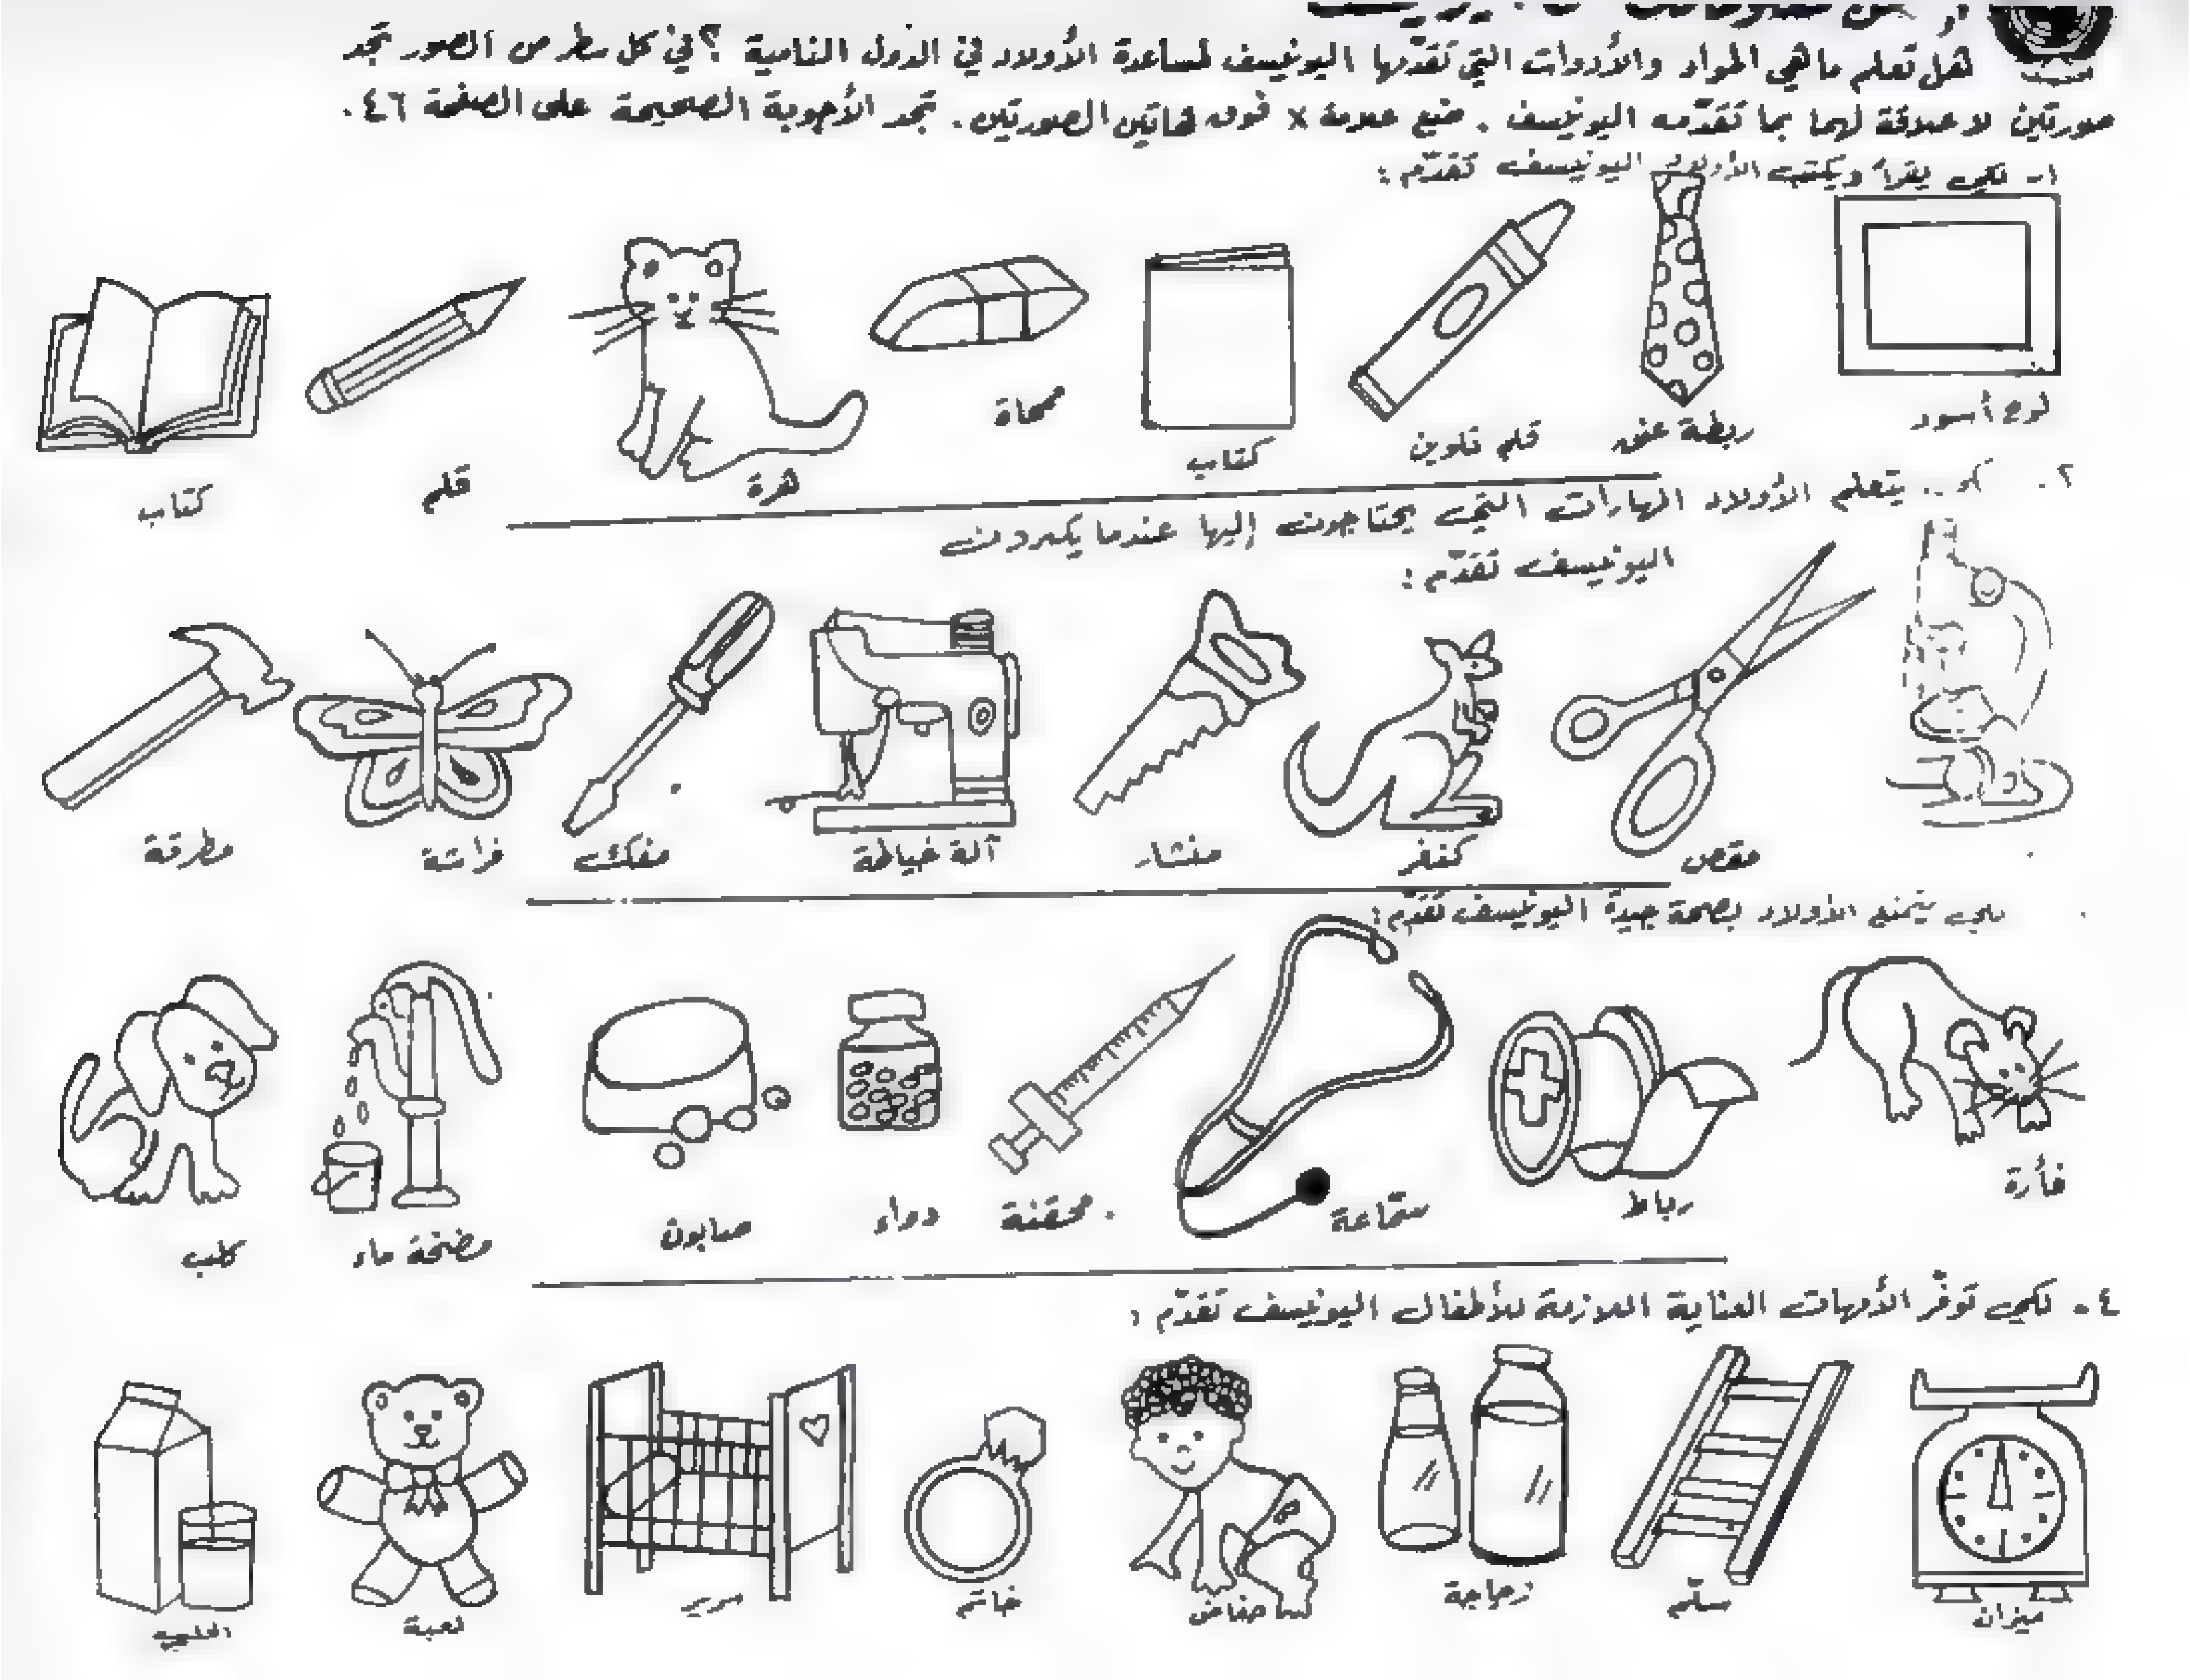 هل تعلم ما هي المواد والأدوات التي تقدّمها اليونيسف لمساعدة الأولاد في الدول النامية ؟ في كل سطر من الصور تجد
صورتين لا علاقة لهما بما تقدّمه اليونيسف . ضع علامة x فوق هاتين الصورتين. تجد الأجوبة الصحيحة على الصفحة ٤٦.
١- لكي يقرأ ويكتب الأولاد اليونيسف تقدّم :
لوح أسود ربطة عنق قلم تلوين كتاب ممحاة هرة قلم كتاب
٢. يتعلم الأولاد المهارات التي يحتاجون إليها عندما يكبرون
اليونيسف تقدّم :
مقص كنغر منشار آلة خياطة مفك فراشة مطرقة
يتمتع الأولاد بصحة جيدة اليونيسف تقدّم :
فأرة رباط سمّاعة محقنة دواء صابون مضخة ماء كلب
٤- لكي توفّر الأمهات العناية اللازمة للأطفال اليونيسف تقدّم :
ميزان سلّم زجاجة خاتم سرير لعبة الحليب